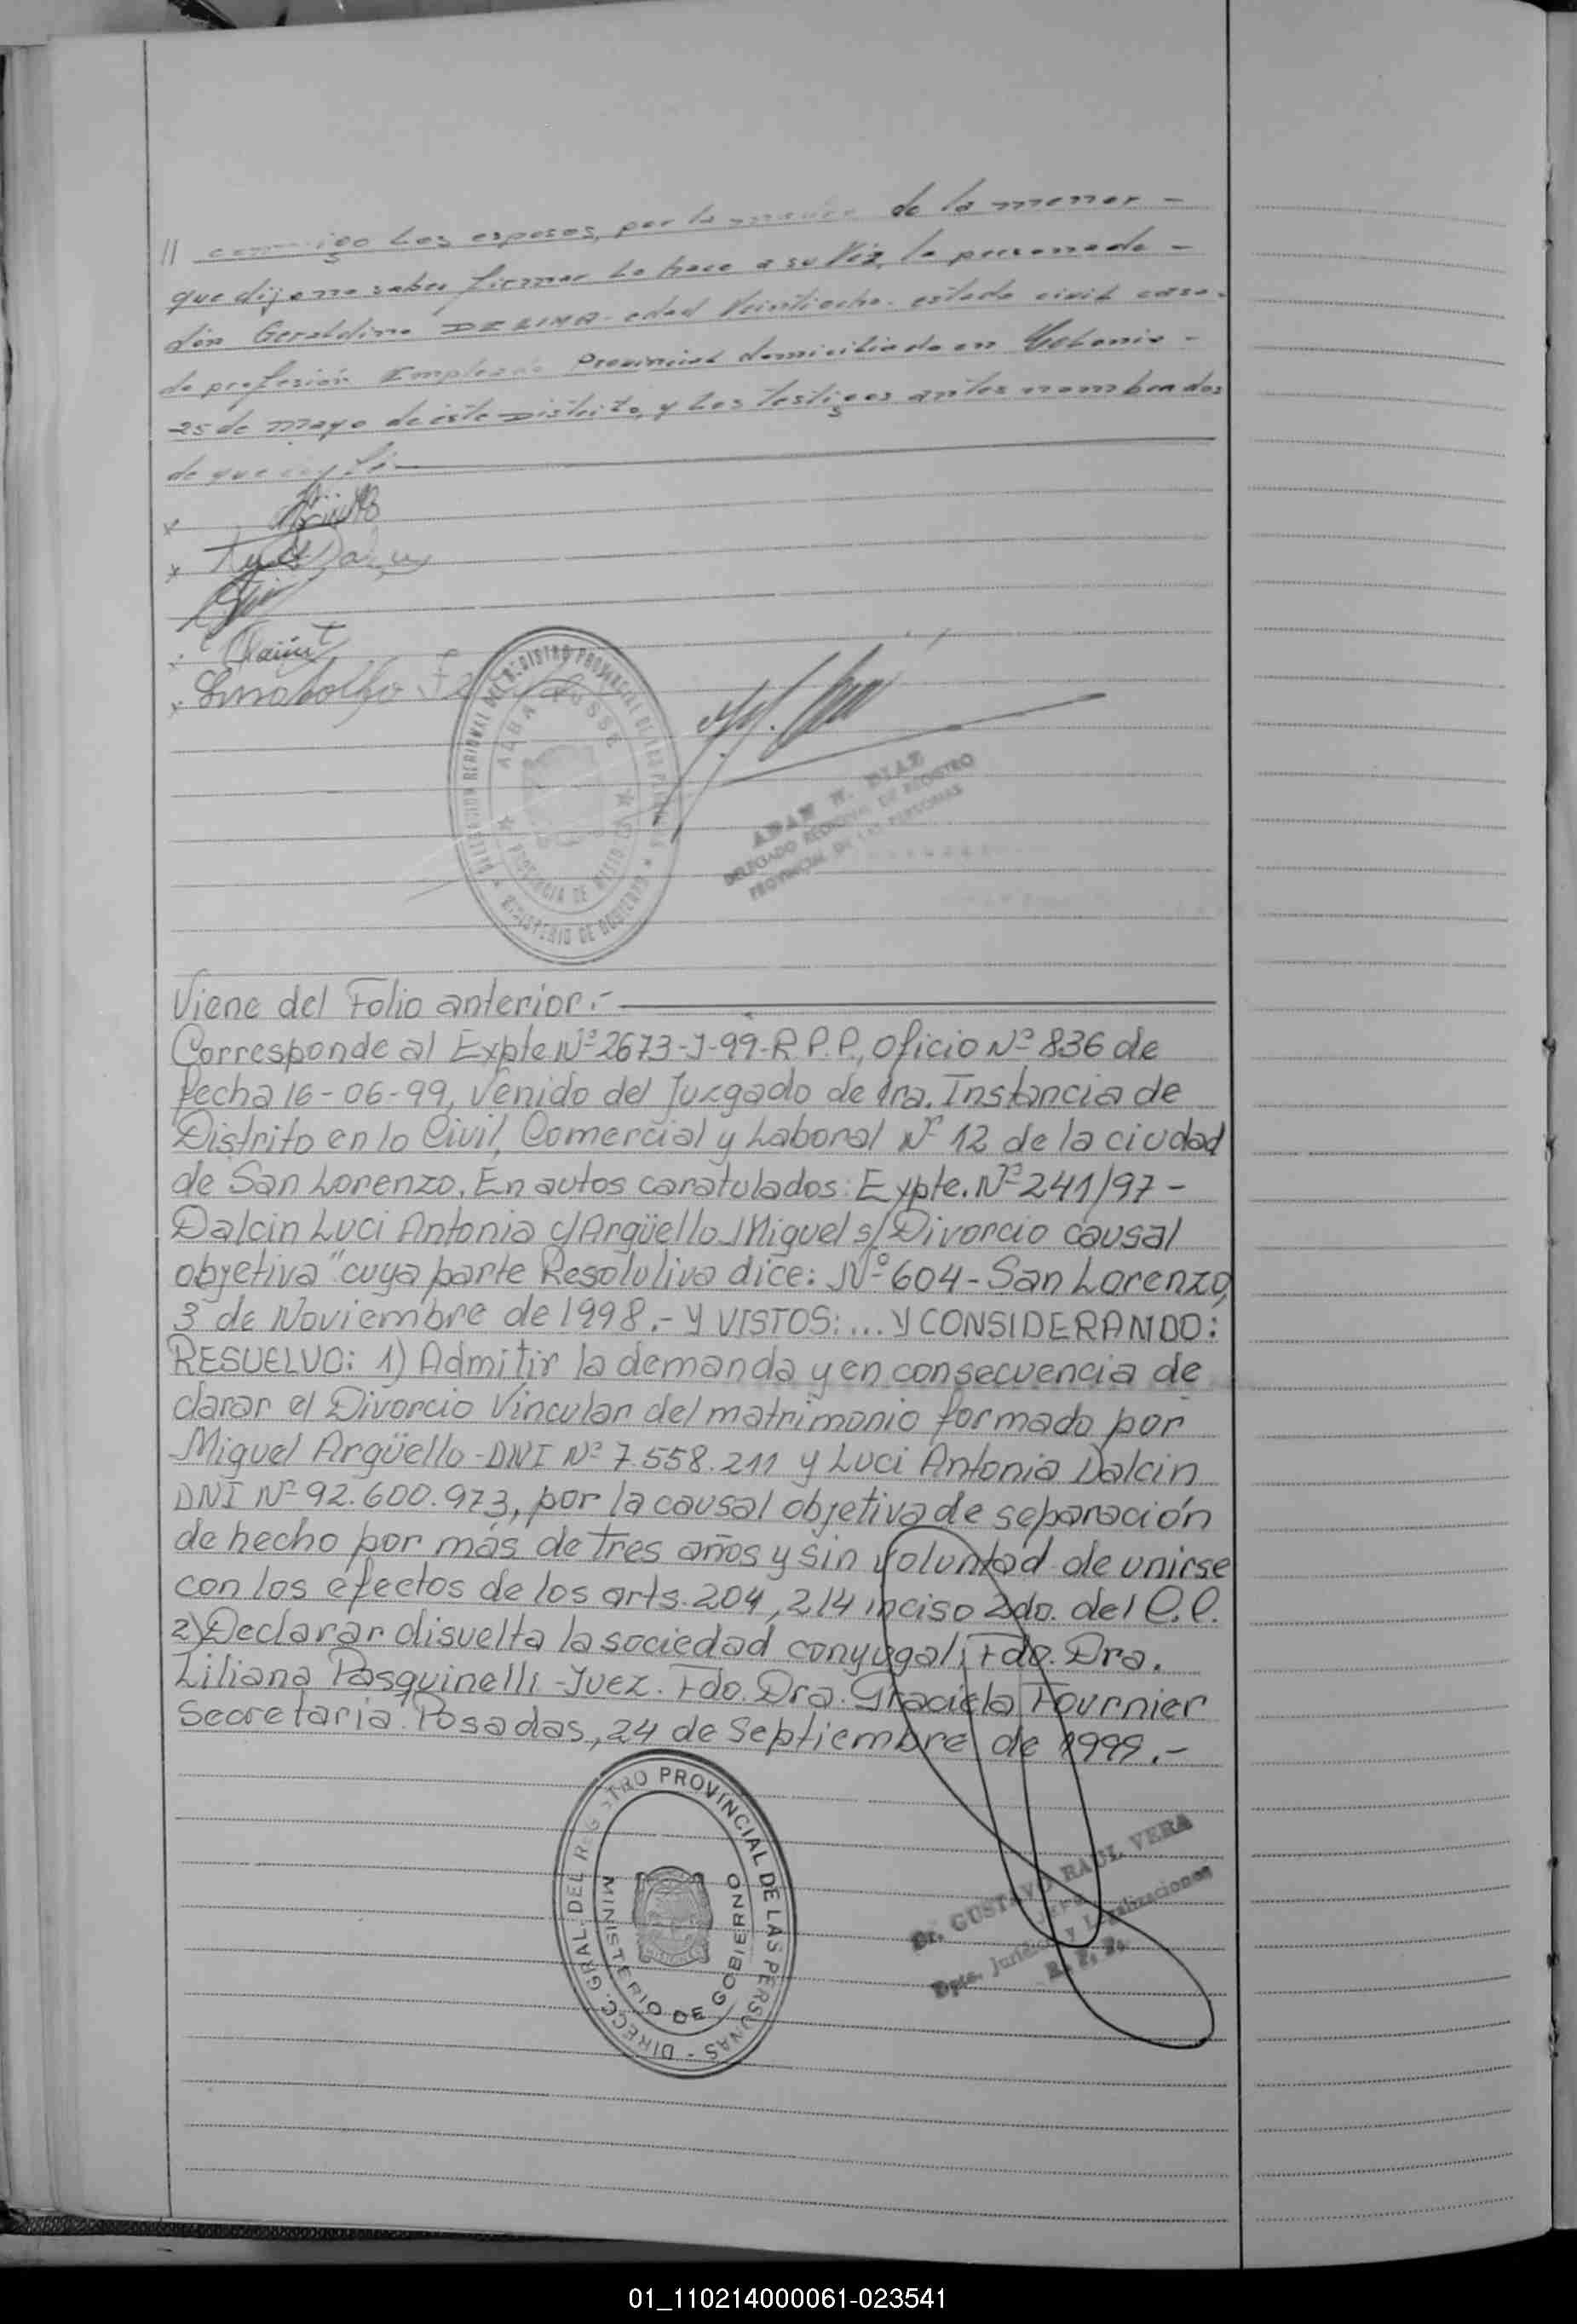 // conmigo los esposos, por la madre de la menor -
que dijo no saber firmar lo hace a su véz, la persona de -
don Geraldino DE LIMA edad Veintiocho estado civil casa-
do profesión Empleado Provincial domiciliado en Colonia -
25 de mayo de éste Distrito, y los testigos antes nombrados
de que doy fé.
x
x
x
x
DELEGACION REGIONAL DEL REGISTRO PROVINCIAL DE LAS PERSONAS
ALBA POSSE
PROVINCIA DE MISIONES
MINISTERIO DE GOBIERNO
ADAN W. DIAZ
DELEGADO REGIONAL DE REGISTRO
PROVINCIAL DE LAS PERSONAS
Viene del Folio anterior.-
Corresponde al Expte Nº 2673-J-99-R.P.P., Oficio Nº 836 de
fecha 16-06-99, venido del Juzgado de 1ra. Instancia de
Distrito en lo Civil, Comercial y Laboral Nº 12 de la ciudad
de San Lorenzo. En autos caratulados: Expte. Nº 241/97 -
Dalcin Luci Antonia c/ Argüello Miguel s/ Divorcio causal
objetiva" cuya parte Resolutiva dice: Nº 604 - San Lorenzo,
3 de Noviembre de 1998.- Y VISTOS: ... Y CONSIDERANDO:
RESUELVO: 1) Admitir la demanda y en consecuencia de
clarar el Divorcio Vincular del matrimonio formado por
Miguel Argüello - DNI Nº 7.558.211 y Luci Antonia Dalcin
DNI Nº 92.600.973, por la causal objetiva de separación
de hecho por más de tres años y sin voluntad de unirse
con los efectos de los arts. 204, 214 inciso 2do. del C.C.
2) Declarar disuelta la sociedad conyugal; Fdo. Dra.
Liliana Pasquinelli - Juez. Fdo. Dra. Graciela Fournier
Secretaria. Posadas, 24 de Septiembre de 1999.-
DIRECC. GRAL. DEL REGISTRO PROVINCIAL DE LAS PERSONAS -
MINISTERIO DE GOBIERNO
Dr. GUSTAVO RAUL VERA
JEFE
Dpto. Jurídico y Legalizaciones
R. P. P.
01_110214000061-023541